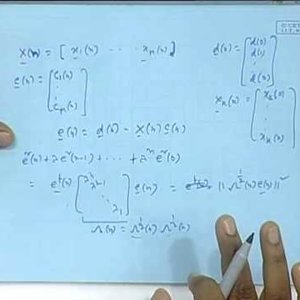 X(n) = [ x₁(n) ⋯ x_p(n) ]
d(n) = [ d(0) d(1) ⋮ d(n) ]
c(n) = [ c₁(n) ⋮ c_p(n) ]
x_k(n) = [ x_k(0) ⋮ x_k(n) ]
e(n) = d(n) - X(n) c(n)
e²(n) + λ e²(n-1) + ⋯ + λⁿ e²(0)
= eᵗ(n) [ λⁿ λⁿ⁻¹ ⋱ 1 ] e(n) = || Λ^½(n) e(n) ||²
Λ(n) = Λ^½(n) Λ^½(n)